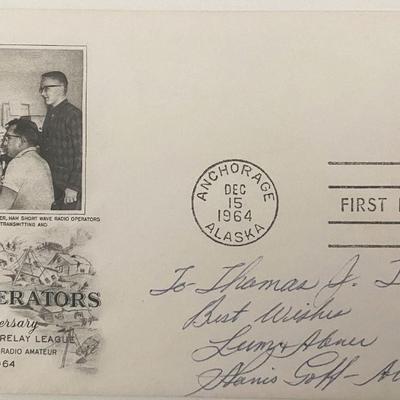 ER, HAM SHORT WAVE RADIO OPERATORS
TRANSMITTING AND
ERATORS
ersary
RELAY LEAGUE
RADIO AMATEUR
64
ANCHORAGE
DEC
15
1964
ALASKA
FIRST
To Thomas J.
Best Wishes
Lum & Abner
Goff